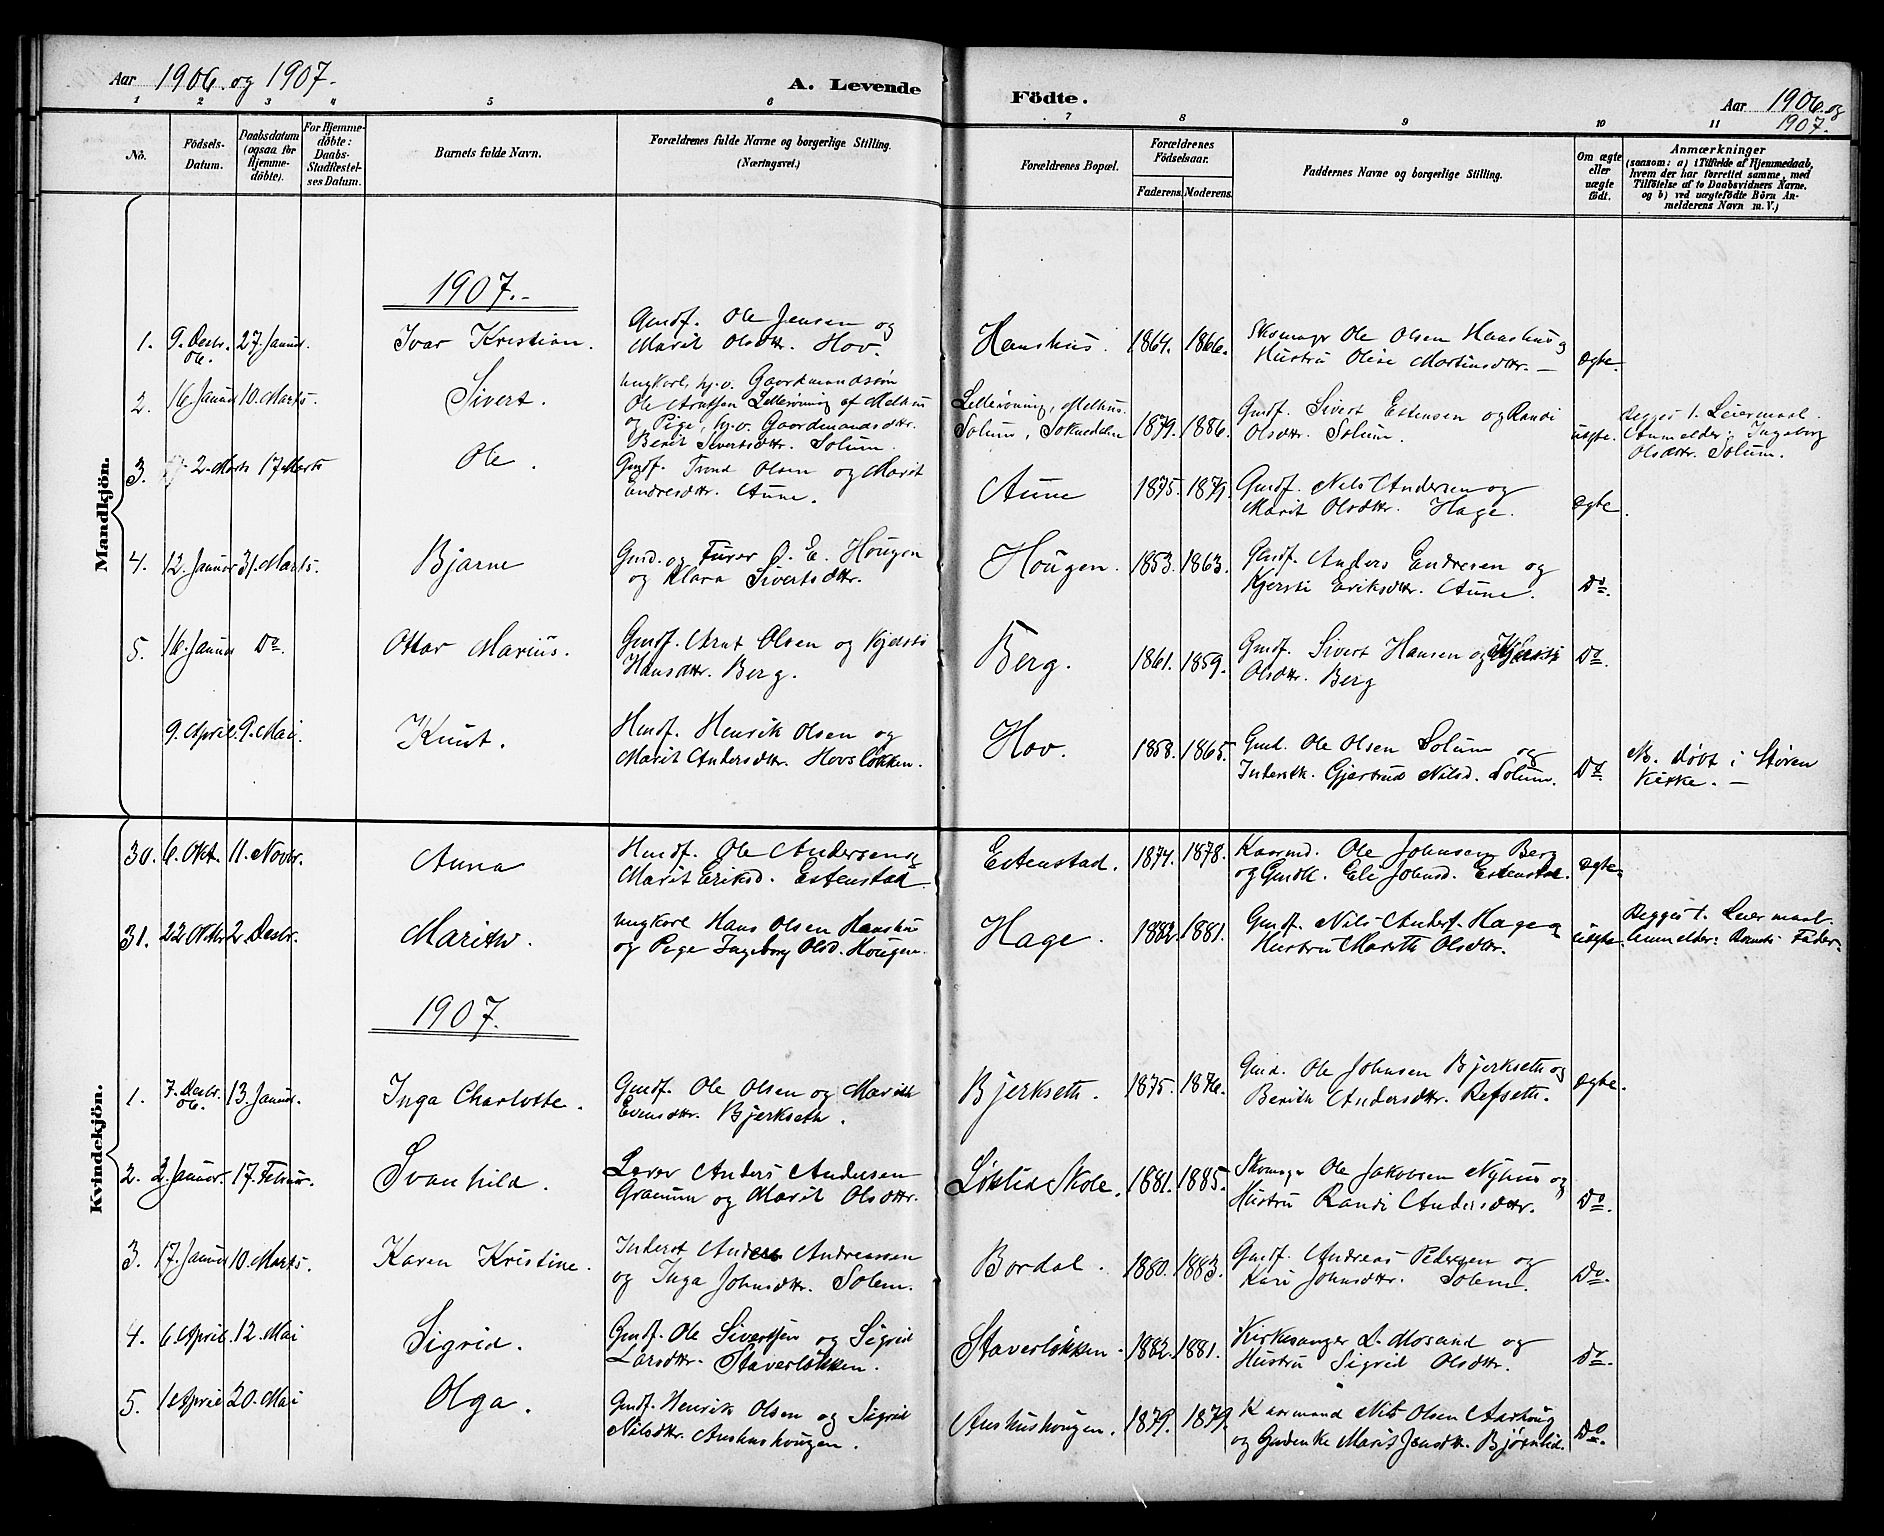 Aar 1906. og 1907.
A. Levende Födte.
Aar 1906. og 1907.
1 2 3 4 5 6 7 8 9 10 11
No.
Födsels-Datum.
Daabsdatum (ogsaa for Hjemme-döbte).
For Hjemme-döbte: Daabs-Stadfæstel-ses Datum.
Barnets fulde Navn.
Forældrenes fulde Navne og borgerlige Stilling.
(Næringsvei.)
Forældrenes Bopæl.
Forældrenes Födselsaar.
Faderens. Moderens.
Faddernes Navne og borgerlige Stilling.
Om ægte eller uægte födt.
Anmærkninger
(saasom: a) i Tilfælde af Hjemmedaab, hvem der har forrettet samme, med Tilföielse af to Daabsvidners Navne, og b) ved uægtefödte Börn An-melderens Navn m. V.)
Mandkjön.
1907.
1. 9. Desbr. 06. 27. Januar. Ivar Kristian. Gmdf. Ole Jensen og
Marit Olsdtr. Hov. Haushus. 1864. 1866. Ole Olsen Haashus og
Hustru Olise Martinsdtr. ægte.
2. 16 Januar 10. Marts. Sivert. Ungkarl, hj.v. Gaardmandssøn
Ole Arntsen Lellerøning af Melhus
og Pige, hj.v. Gaardmandsdtr.
Berit Sivertsdtr. Solum. Lellerøning, Melhus.
Solum, Soknedalen 1879. 1886. Gmdf. Sivert Estensen og Randi
Olsdtr. Solum. uægte. Begges 1. Leiermaal.
Anmelder: Ingeborg
Olsdtr. Solum.
3. 2. Marts 17 Marts Ole. Gmdf. Trond Olsen og Marit
Endresdtr. Aune. Aune 1875. 1879. Gmdf. Nils Andersen og
Marit Olsdtr. Hage. ægte.
4. 12. Januar 31. Marts. Bjarne Gmd. og Furer O. E. Hougen
og Klara Sivertsdtr. Hougen. 1853. 1863. Gmdf. Anders Endresen og
Kjersti Eriksdtr. Aune. Do.
5. 16. Januar Do. Ottar Marius. Gmdf. Arnt Olsen og Kjersti
Hansdtr. Berg. Berg. 1861. 1859. Gmdf. Sivert Hansen og Kjersti
Olsdtr. Berg Do.
9. April. 9. Mai. Knut. Hmdf. Henrik Olsen og
Marit Andersdtr. Hovsløkken. Hov. 1858. 1865. Gmd. Ole Olsen Solum og
Inderstk. Gjertrud Nilsd. Solum. Do. Nb. døbt i Støren
Kirke.
Kvindekjön.
30. 6. Okt. 11. Novbr. Anna Hmdf. Ole Andersen og
Marit Eriksd. Estenstad Estenstad. 1874. 1878. Kaarmd. Ole Johnsen Berg
og Gmdk. Eli Johnsd. Estenstad. ægte
31. 22 Oktbr 2 Desbr. Marithe. Ungkarl Hans Olsen Haushus
og Pige Ingeborg Olsd. Hougen. Hage. 1882. 1881. Gmdf. Nils Anders. Hage og
Hustru Marith Olsdtr. uægte. Begges 1. Leiermaal.
Anmelder: Barnets Fader.
1907.
1. 7. Desbr. 06. 13. Januar. Inga Charlotte. Gmdf. Ole Olsen og Marith
Evensdtr. Bjerkseth. Bjerkseth. 1875. 1876. Gmd. Ole Johnsen Bjerkseth og
Berith Andersdtr. Refseth. ægte.
2. 2 Januar. 17. Februar. Svanhild. Lærer Anders Andersen
Granum og Marit Olsdtr. Løklid Skole. 1881. 1885. Ole Jakobsen Nyhus og
Hustru Randi Andersdtr. Do.
3. 17. Januar 10. Marts. Karen Kristine. Inderst Anders Andreassen
og Inga Johnsdtr. Solem. Bordal. 1880. 1883. Gmdf. Andreas Pedersen og
Kari Johnsdtr. Solem. Do.
4. 6 April. 12. Mai Sigrid. Gmdf. Ole Sivertsen og Sigrid
Larsdtr. Staverløkken. Staverløkken. 1882. 1881. Kirkesanger L. Mosand og
Hustru Sigrid Olsdtr. Do.
5. 1 April 20. Mai Olga. Gmdf. Henrik Olsen og Sigrid
Nilsdtr. Aushushougen. Aushushougen. 1879. 1879. Kaarmand Nils Olsen Aashoug
og Gmdenke Marit Jensdtr. Bjørnlid. Do.